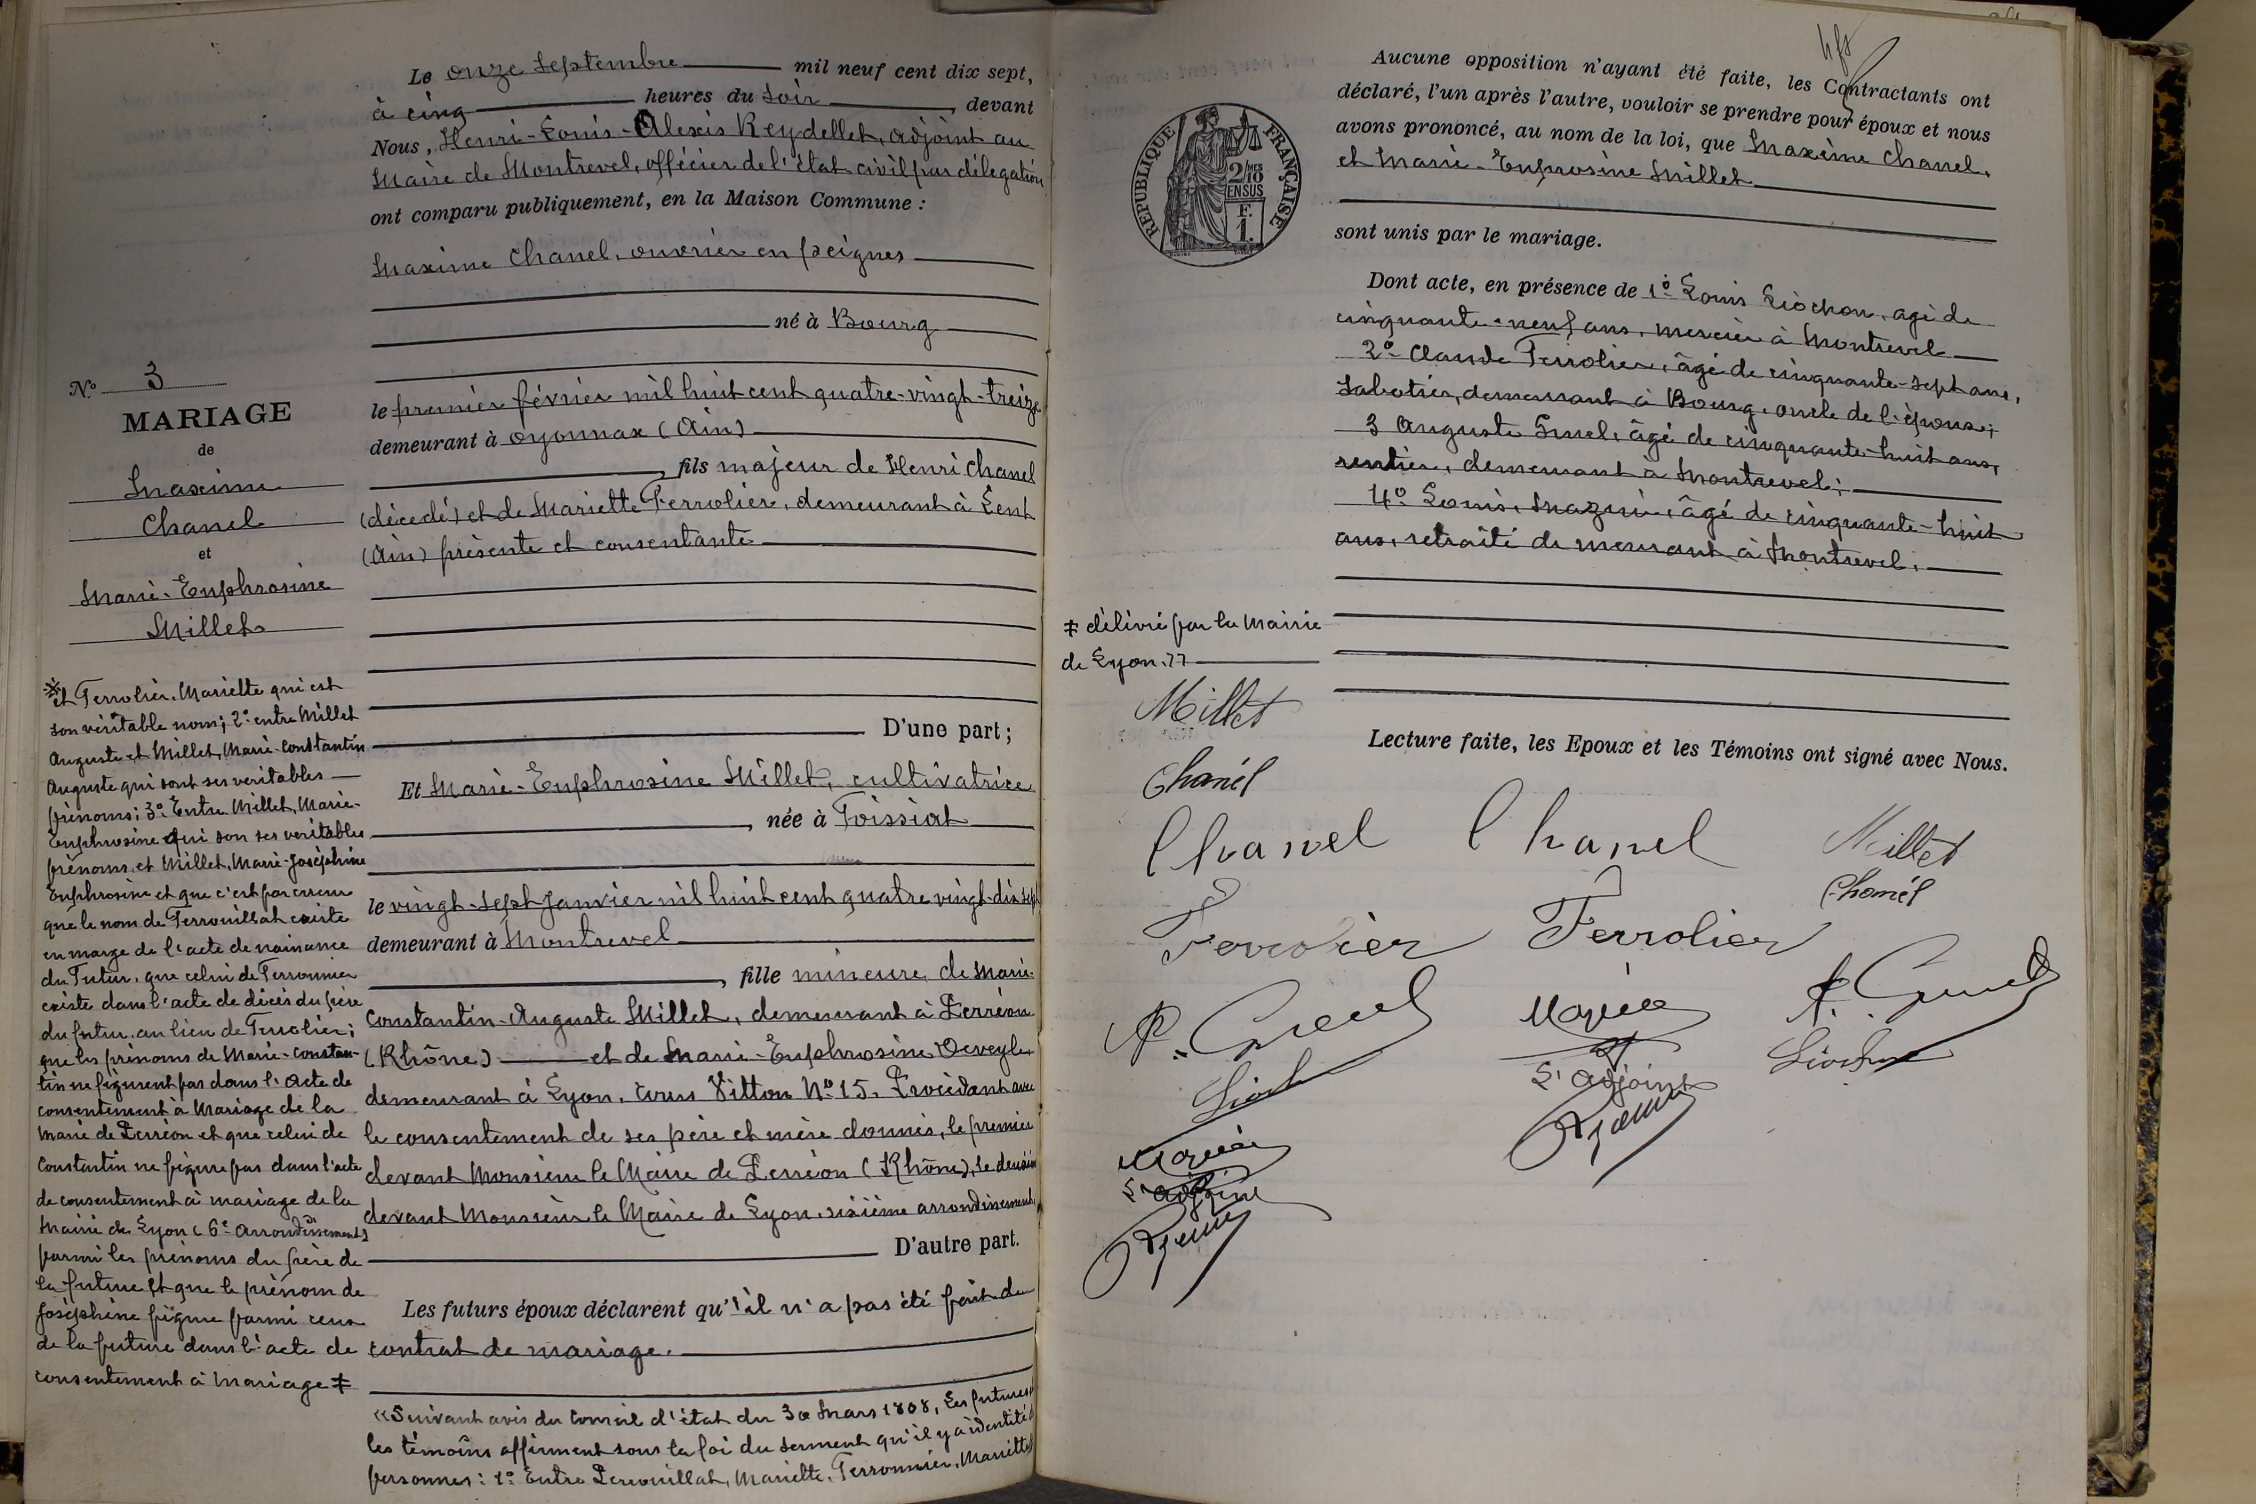 Le onze Septembre mil neuf cent dix sept,
à cinq heures du soir, devant
Nous, Henri-Louis-Alexis Reydellet, adjoint au
Maire de Montrevel, officier de l'état civil par délégation
ont comparu publiquement, en la Maison Commune :
Maxime Chanel, ouvrier en peignes
né à Bourg
le premier février mil huit cent quatre-vingt-treize
demeurant à Oyonnax (Ain)
, fils majeur de Henri Chanel
(décédé) et de Mariette Ferrolier, demeurant à Lent
(Ain) présente et consentante
D'une part;
Et Marie-Euphrosine Millet, cultivatrice
, née à Foissiat
le vingt-sept Janvier mil huit cent quatre vingt-dix sept
demeurant à Montrevel
, fille mineure de Marie-
Constantin-Auguste Millet, demeurant à Perréon
(Rhône) et de Marie-Euphrosine Deveyle
demeurant à Lyon, Cours Vitton N° 15. Procédant avec
le consentement de ses père et mère donnés, le premier
devant Monsieur le Maire de Perréon (Rhône), le deuxième
devant Monsieur le Maire de Lyon, sixième arrondissement
D'autre part.
Les futurs époux déclarent qu'il n'a pas été fait de
contrat de mariage.
«Suivant avis du Conseil d'état du 30 Mars 1808, Les futurs et
les témoins affirment sous la foi du serment qu'il y a identité de
personnes: 1° Entre Perrouillat, Mariette, Ferronnier, Mariette
N° 3
MARIAGE
de
Maxime
Chanel
et
Marie-Euphrosine
Millet
※ et Ferrolier, Mariette qui est
son véritable nom; 2° entre Millet
Auguste et Millet, Marie-Constantin
Auguste qui sont ses veritables
prénoms; 3° Entre Millet, Marie-
Euphrosine qui son ses veritables
prénoms et Millet, Marie-Joséphine
Euphrosine et que c'est par erreur
que le nom de Ferrouillat existe
en marge de l'acte de naissance
du Futur, que celui de Ferronnier
existe dans l'acte de décès du père
du futur, au lieu de Ferrolier;
que les prénoms de Marie-Constan-
tin ne figurent pas dans l'acte de
consentement à Mariage de la
Mairie de Perréon et que celui de
Constantin ne figure pas dans l'acte
de consentement à mariage de la
Mairie de Lyon (6e Arrondissement)
parmi les prénoms du père de
la future et que le prénom de
Joséphine figure parmi ceux
de la future dans l'acte de
consentement à Mariage ‡
Aucune opposition n'ayant été faite, les Contractants ont
déclaré, l'un après l'autre, vouloir se prendre pour époux et nous
avons prononcé, au nom de la loi, que Maxime Chanel,
et Marie-Euphrosine Millet
sont unis par le mariage.
RÉPUBLIQUE FRANÇAISE
2/10mes
EN SUS
F.
1.
Dont acte, en présence de 1° Louis Liochon, agé de
cinquante-neuf ans, mercier à Montrevel
2° Claude Ferrolier, âgé de cinquante-sept ans,
sabotier, demeurant à Bourg, oncle de l'époux;
3 Auguste Gruel, âgé de cinquante-huit ans,
rentier, demeurant à Montrevel;
4° Louis, Mazuir, âgé de cinquante-huit
ans, retraité demeurant à Montrevel.
‡ délivré par la Mairie
de Lyon.»
Lecture faite, les Epoux et les Témoins ont signé avec Nous.
Millet
Chanel
Chanel Chanel Millet
Chanel
Ferrolier Ferrolier
L'adjoint
L'adjoint